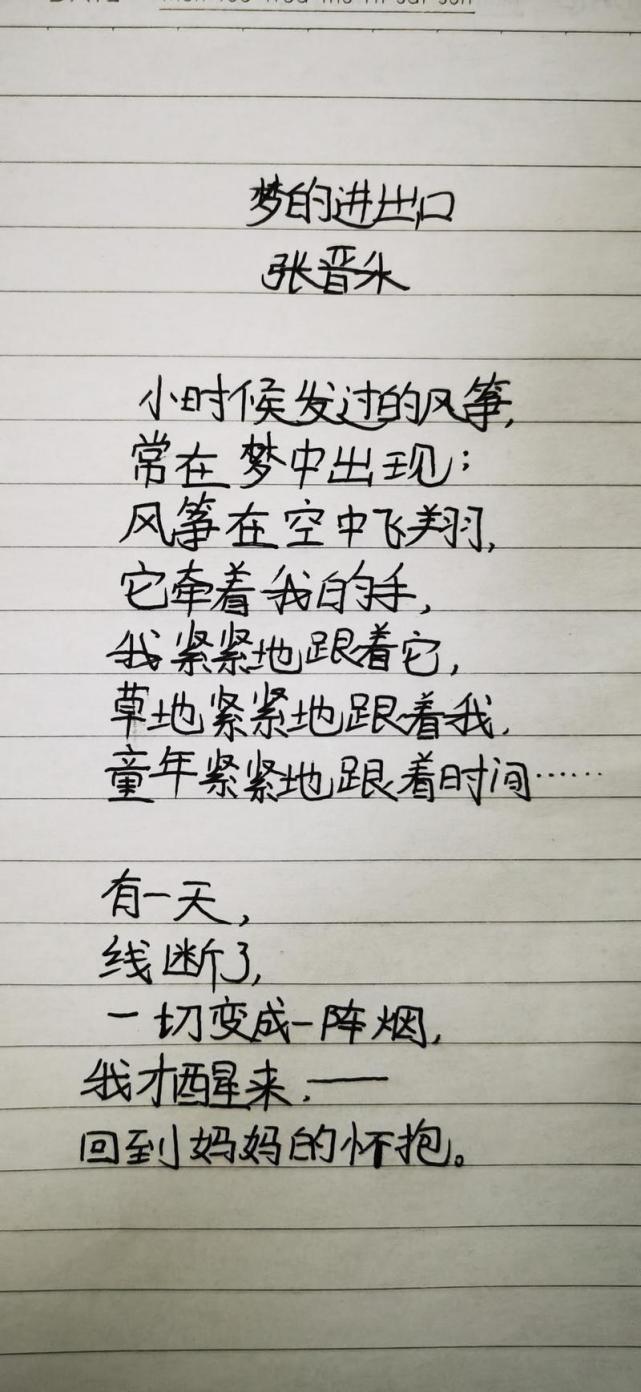 梦的进出口
张晋头
小时候发过的风筝,
常在梦中出现;
风筝在空中飞翔,
它牵着我的手,
我紧紧地跟着它,
草地紧紧地跟着我.
童年紧紧地跟着时间……
有一天,
线断了,
一切变成一阵烟,
我才醒来.——
回到妈妈的怀抱。